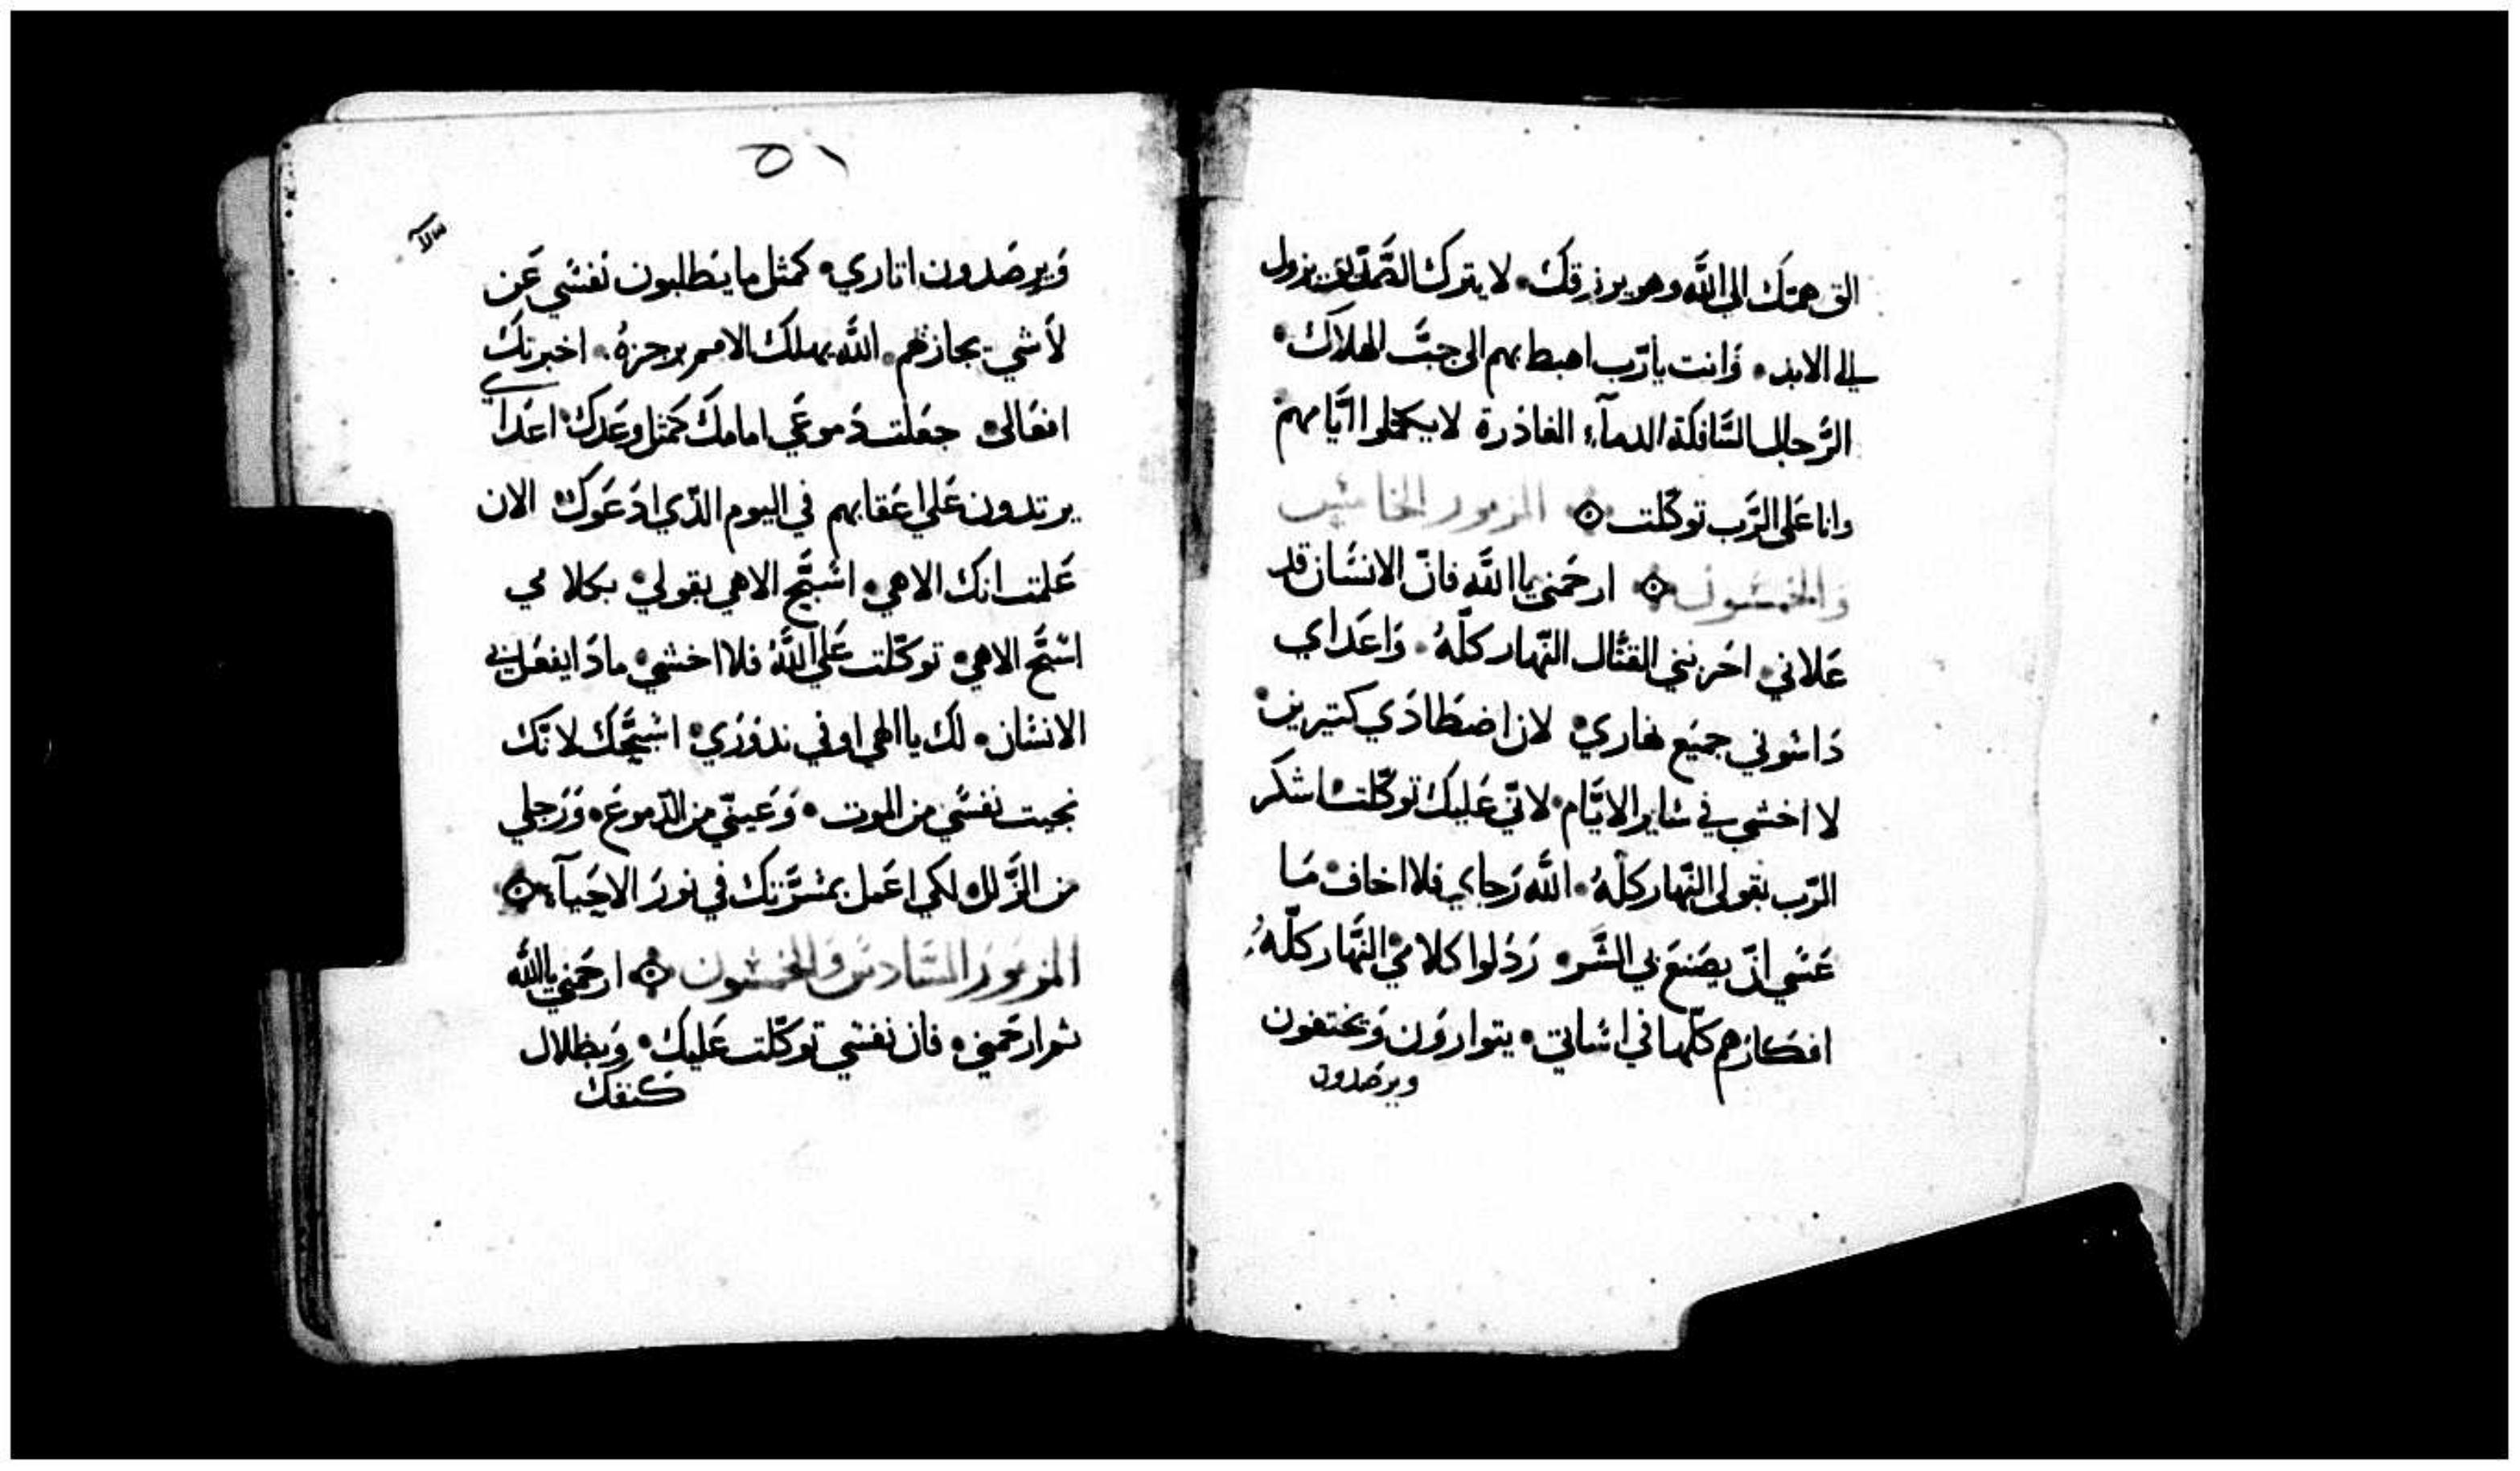 الق همّك الى اللّه وهو يرزقك. لا يترك الصّدّيق يزول
الي الابد. وانت يا رّب اهبط بهم الى جبّ الهلاك.
الرّجال السّافكة الدمآء الغادرة لا يكملوا ايّامهم
وانا على الرَّب توكّلت المزمور الخامس
والخمسون ارحَمني يا اللَّه فانّ الانسَان قد
عَلاني. احزنني القتَال النّهار كلّهُ. وَاعَداي
دَاسوني جميَع نهاري. لان اضطادَي كتيرين.
لا اخشى في ساير الايَّام. لانّي عَليك توكّلت. اشكر
الرّب بقولى النّهار كلّهُ. اللَّه رَجاي فلا اخاف. مَا
عَسَي انّ يصَنعَ بي الشَّر. رَدَلوا كلامي النَّهار كلّهُ.
افكارَهم كلّها في اساتي. يتوارَون وَيختفون
ويرصَدون
٥١
وَيرصَدون اتاري. كمثل ما يَطلبون نَفسَي عَن
لاَشي تجازيَهم. اللَّه يهلك الامم برجزهُ. اخبرتك
افعَالى. جعَلت دَموعَي امامك كَمثل وعَدك. اعَداي
يرتدون عَلي اعَقابهم في اليوم الذّي ادَعَوك. الان
عَلمت انك الاهي. اسَبّح الاهي بقولي. بكلامي
اسّبَّح الاهي. توكّلت عَلي اللَّهُ فلا اخشي. مادَا يفعَل بي
الانسَان. لك يا الهي اوفي ندوَرَي. اسَبّحَك لانّك
نجيت نَفسَي من الموت. وَعَينّي من الدّموعَ. وَرَجلي
من الزَّلل. لكي اعَمل بمسَرّتك في نورَ الاحَيآء.
المزمورَ السَّادسَ والخمسَون ارحَمني يا اللَّه
تم ارحَمني. فان نفسَي توكّلت عَليك. وَبظلال
كنفك